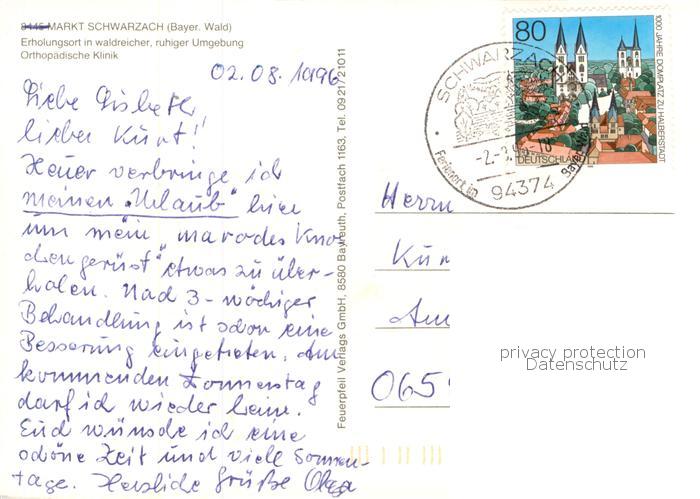 8445 MARKT SCHWARZACH (Bayer. Wald)
Erholungsort in waldreicher, ruhiger Umgebung
Orthopädische Klinik
02.08.1996
Liebe Lisbeth,
lieber Kurt!
Heuer verbringe ich
meinen "Urlaub" hier
um mein "marodes Kno-
chengerüst" etwas zu über-
holen. Nach 3-wöchiger
Behandlung ist schon eine
Besserung eingetreten. Am
kommenden Donnerstag
darf ich wieder heim.
Euch wünsche ich eine
schöne Zeit und viele Sonnen-
tage. Herzliche Grüße Olga
Feuerpfeil Verlags GmbH, 8580 Bayreuth, Postfach 1163, Tel. 0921/21011
80
1000 JAHRE DOMPLATZ ZU HALBERSTADT
DEUTSCHLAND
SCHWARZACH
94374
Ferienort im
Bayer. Wald
Herrn
Kur
Am
065
privacy protection
Datenschutz